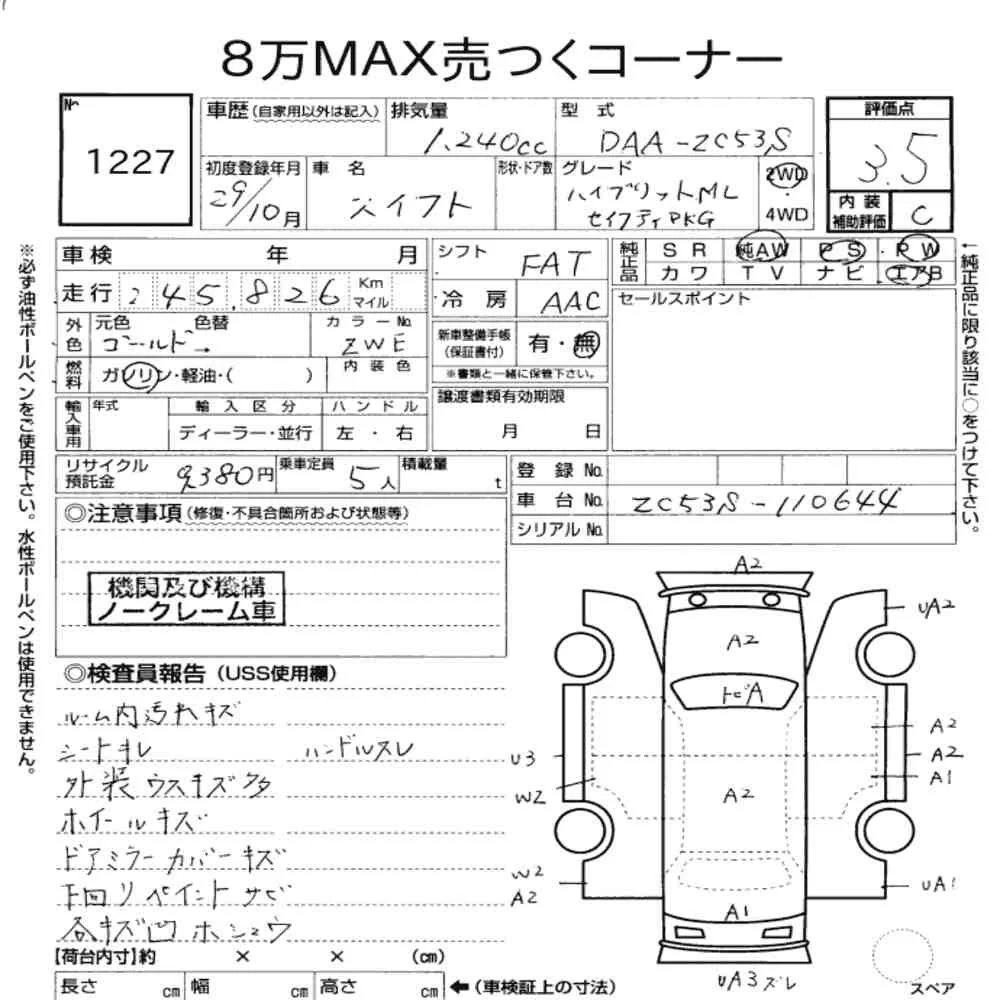 8万MAX売つくコーナー
No
1227
車歴(自家用以外は記入)
排気量
1,240cc
型 式
DAA-ZC53S
評価点
3.5
初度登録年月
29/10月
車 名
スイフト
形状・ドア数
グレード
ハイブリットML
セイフティPKG
2WD
・
4WD
内 装
補助評価
C
車検 年 月
シフト
FAT
純正品
SR 純AW PS ・ PW
カワ TV ナビ エアB
走行 245,826 Km マイル
冷 房
AAC
セールスポイント
外色
元色 色替
ゴールド→
カラーNo.
ZWE
新車整備手帳
(保証書付)
有・無
※書類と一緒に保管下さい。
燃料
ガソリン・軽油・( )
内 装 色
譲渡書類有効期限
月 日
輸入車用
年式
輸 入 区 分
ハ ン ド ル
ディーラー・並行
左 ・ 右
リサイクル
預託金
9,380円
乗車定員
5人
積載量
t
登 録 No.
車 台 No.
ZC53S-110644
シリアルNo.
◎注意事項(修復・不具合箇所および状態等)
機関及び機構
ノークレーム車
◎検査員報告(USS使用欄)
ルーム内汚れキズ
シートキレ ハンドルスレ
外装ウスキズ多
ホイールキズ
ドアミラーカバーキズ
下回リペイントサビ
各キズ凹ホシュウ
A2
UA2
A2
トビA
A2
A2
A1
U3
W2
A2
W2
A2
UA1
A1
UA3ズレ
スペア
【荷台内寸】約 × × (cm)
長さ cm 幅 cm 高さ cm ←(車検証上の寸法)
※必ず油性ボールペンをご使用下さい。水性ボールペンは使用できません。
←純正品に限り該当に○をつけて下さい。